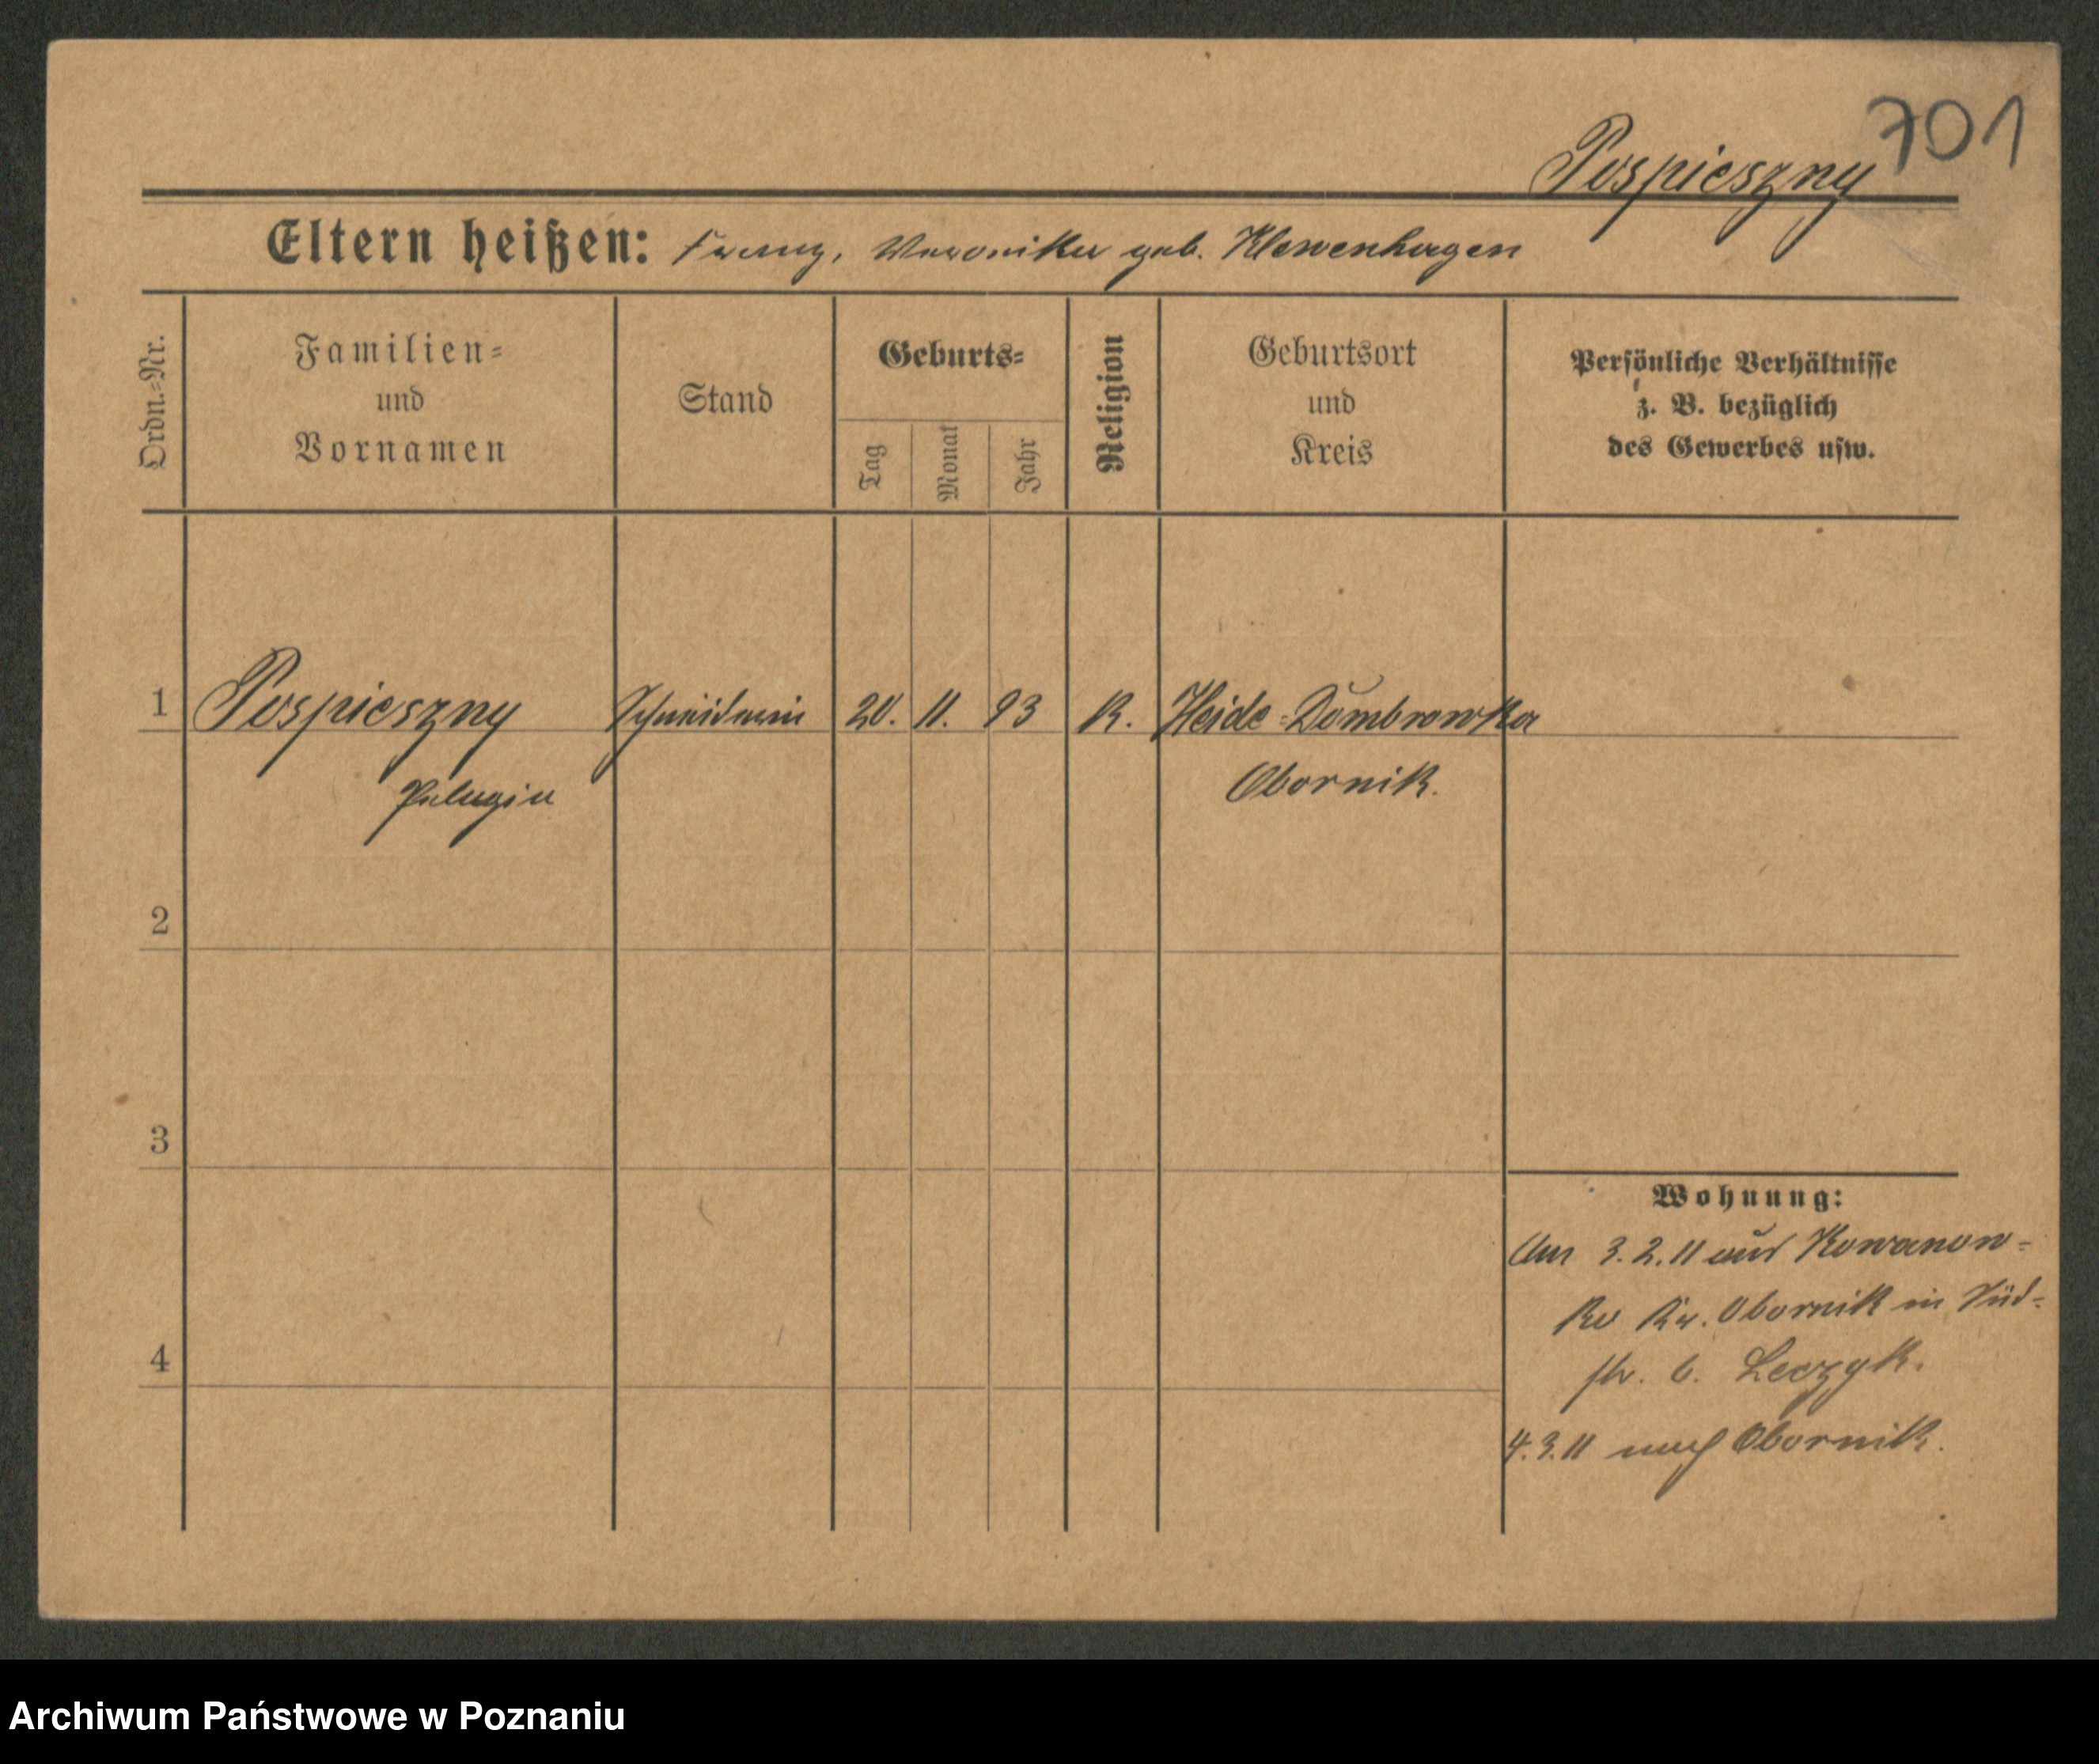 701
Pospieszny
Eltern heißen: Franz, Veronika geb. Klewenhagen
Ordn.-Nr.
Familien-
und
Vornamen
Stand
Geburts-
Tag
Monat
Jahr
Religion
Geburtsort
und
Kreis
Persönliche Verhältnisse
z. B. bezüglich
des Gewerbes usw.
1 Pospieszny Schneiderin 20. 11. 93 K. Heide-Dombrowka
Pelagia Obornik.
2
3
Wohnung:
Am 3.2.11 aus Kowanow-
ko Kr. Obornik in Süd-
str. 6. Leczyk.
4
4.3.11 nach Obornik.
Archiwum Państwowe w Poznaniu